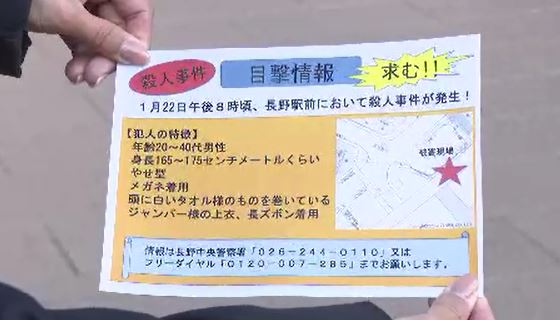 殺人事件 目撃情報 求む!!
1月22日午後8時頃、長野駅前において殺人事件が発生!
【犯人の特徴】
年齢20～40代男性
身長165～175センチメートルくらい
やせ型
メガネ着用
頭に白いタオル様のものを巻いている
ジャンパー様の上衣、長ズボン着用
被害現場
情報は長野中央警察署「026-244-0110」又は
フリーダイヤル「0120-007-285」までお願いします。